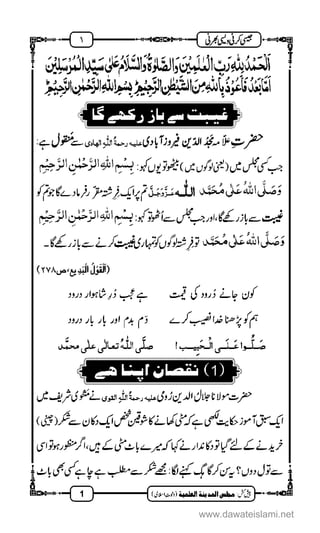 ۱ جیسی کرنی ویسی بھرنی
اَلْحَمْدُ لِلّٰهِ رَبِّ الْعٰلَمِیْنَ وَالصَّلٰوةُ وَالسَّلَامُ عَلٰی سَیِّدِ الْمُرْسَلِیْنَ
اَمَّا بَعْدُ فَاَعُوْذُ بِاللّٰهِ مِنَ الشَّیْطٰنِ الرَّجِیْمِ بِسْمِ اللّٰهِ الرَّحْمٰنِ الرَّحِیْمِ
غیبت سے باز رکھے گا
حضرتِ علّامہ مَجْدُ الدّین فیروز آبادی علیہ رحمۃُ اللہِ الھادی سے مَنْقُول ہے:
جب کسی مجلس میں (یعنی لوگوں میں) بیٹھو تو یوں کہو: بِسْمِ اللّٰهِ الرَّحْمٰنِ الرَّحِیْمِ
وَصَلَّی اللّٰهُ عَلٰی مُحَمَّد تو اللہ عَزَّوَجَلَّ تم پر ایک فِرِشتہ مقرّر فرما دے گا جو تم کو
غیبت سے باز رکھے گا، اور جب مجلس سے اُٹھو تو کہو: بِسْمِ اللّٰهِ الرَّحْمٰنِ الرَّحِیْمِ
وَصَلَّی اللّٰهُ عَلٰی مُحَمَّد تو فِرِشتہ لوگوں کو تمہاری غیبت کرنے سے باز رکھے گا۔
(اَلْقَوْلُ الْبَدِیع، ص ۲۷۸)
کون جانے دُرود کی قیمت ہے عَجَب دُرِ شاہوار دُرود
ہم کو پڑھنا خدا نصیب کرے دَم بَدَم اور بار بار دُرود
صَلُّوا عَلَی الْحَبِیب! صلَّی اللّٰہُ تعالٰی علٰی محمَّد
(1) نقصان اپنا ھے
حضرت مولانا جلال الدّین رُومی علیہ رحمۃُ اللہِ القوی نے مثنوی شریف میں
ایک سبق آموز حکایت لکھی ہے کہ مِٹّی کھانے کا شوقین شخص ایک دکان سے شکر (چینی)
خریدنے کے لئے گیا تو دکاندار نے کہا کہ میرے باٹ مٹی کے ہیں، اگر منظور ہو تو اسی
سے تول دوں؟ یہ سن کر گاہک کہنے لگا: مجھے شکر سے مطلب ہے چاہے کسی بھی باٹ
1 پیش کش: مجلس المدینۃ العلمیۃ (دعوتِ اسلامی)
www.dawateislami.net